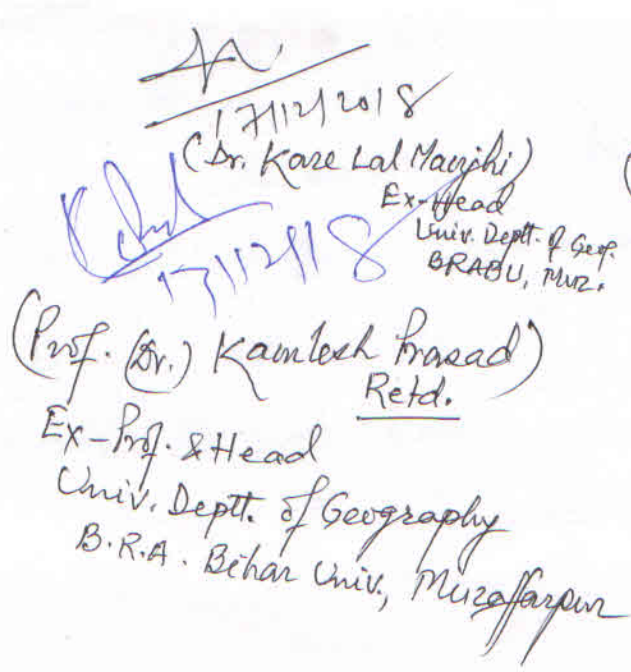 17/12/2018
(Dr. Kare Lal Manjhi)
Ex-Head
Univ. Deptt. of Geog.
BRABU, Muz.
17/12/18
(Prof. (Dr.) Kamlesh Prasad)
Retd.
Ex-Prof. & Head
Univ. Deptt. of Geography
B.R.A. Bihar Univ., Muzaffarpur